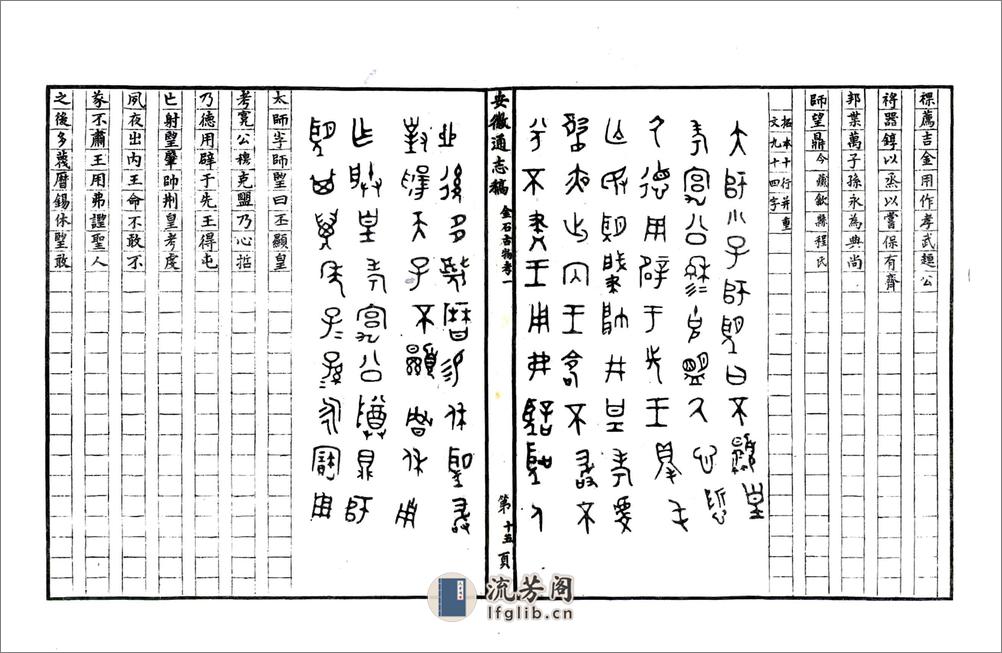 薦吉金用作孝武趠公
器錞以烝以嘗保有齊
邦葉萬子孫永為典尚
師望鼎 今藏歙縣程氏
拓本十行并重
文九十四字
大師小子師望曰不顯皇
考宄公穆克盟厥心哲
厥德用辟于先王得屯
亡敃望肇帥井皇考虔
夙夜出内王命不敢不
不王用弗聖人
之後多蔑曆易休望敢
對揚天子不顯魯休用
乍朕皇考宄公尊鼎師
望其萬年子孫永寶用
安徽通志稿
金石古物考一
第十五頁
太師師朢曰丕顯皇
考寛公穆克盟乃心哲
乃德用辟于先王得屯
亡射朢肇帥荆皇考虔
夙夜出内王命不敢不
不肅王用弗諲聖人
之後多蔑曆錫休朢敢
流芳阁
lfglib.cn